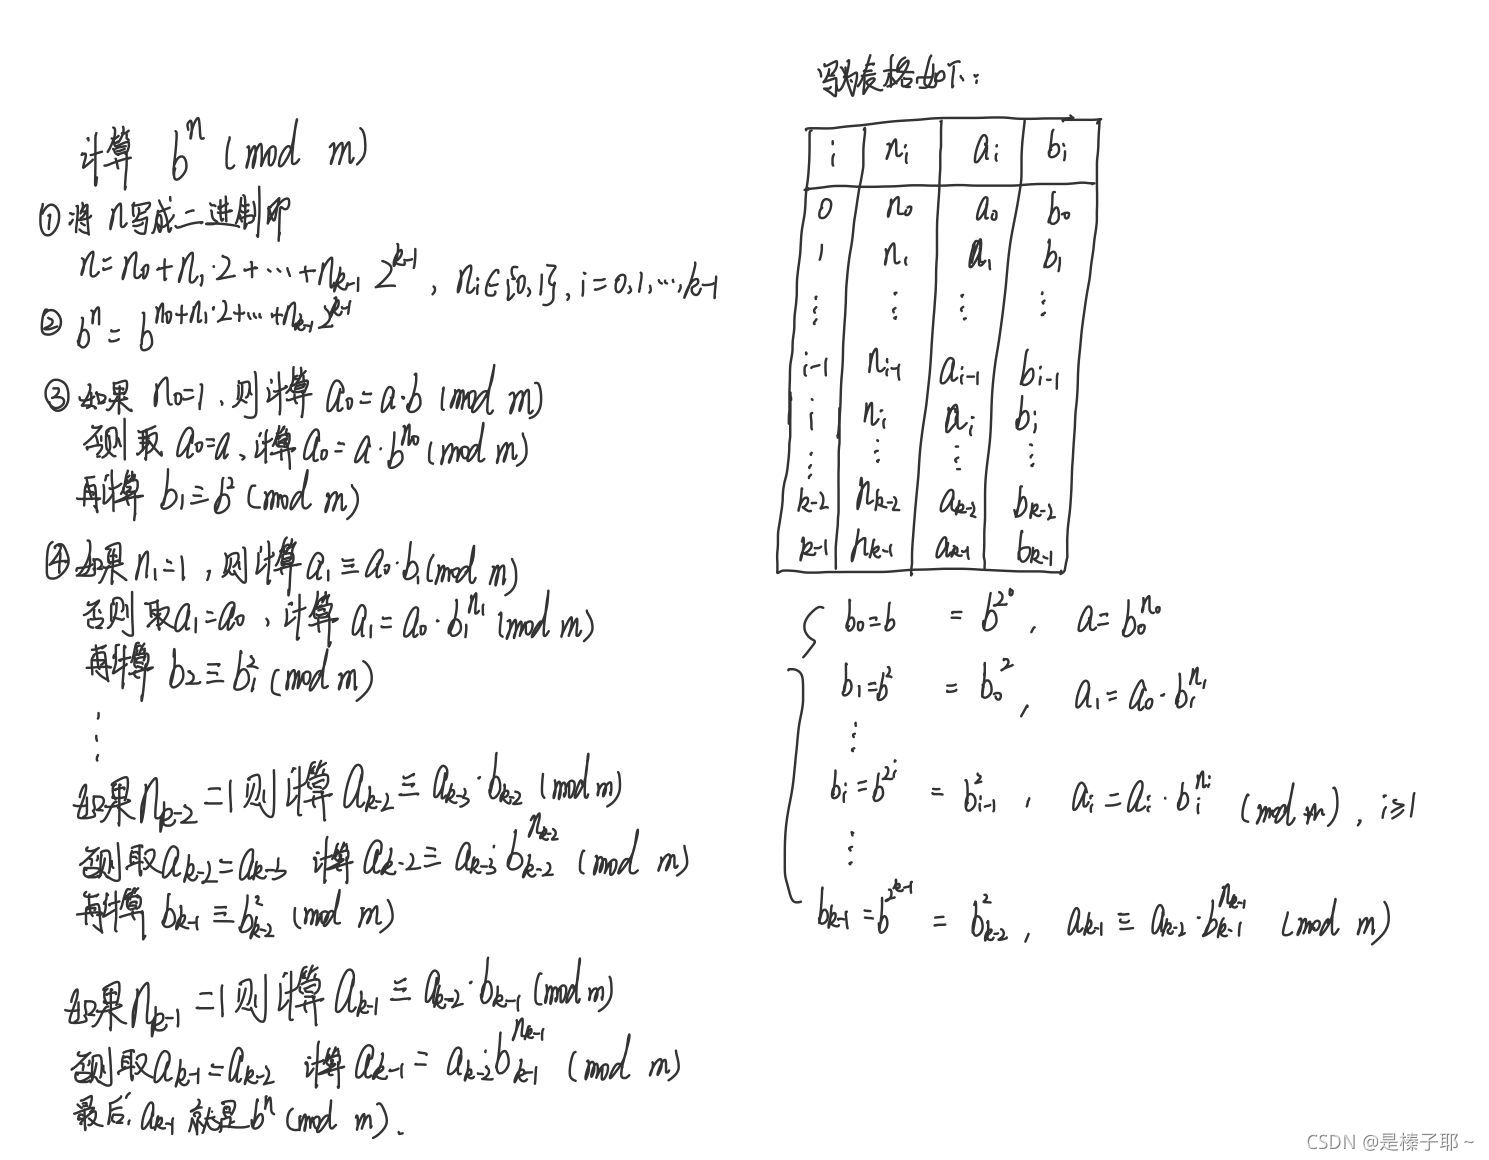 计算 b^n (mod m)
① 将 n写成二进制即
n = n_0 + n_1·2 + ⋯ + n_{k-1} 2^{k-1}, n_i ∈ {0,1}, i = 0,1,⋯,k-1
② b^n = b^{n_0+n_1·2+⋯+n_{k-1}2^{k-1}}
③ 如果 n_0=1, 则计算 a_0 = a·b (mod m)
否则取 a_0=a, 计算 a_0 = a·b^{n_0} (mod m)
再计算 b_1 ≡ b^2 (mod m)
④ 如果 n_1=1, 则计算 a_1 ≡ a_0·b_1 (mod m)
否则取 a_1=a_0, 计算 a_1 = a_0·b_1^{n_1} (mod m)
再计算 b_2 ≡ b_1^2 (mod m)
⋮
如果 n_{k-2} = 1 则计算 a_{k-2} ≡ a_{k-3}·b_{k-2} (mod m)
否则取 a_{k-2} = a_{k-3} 计算 a_{k-2} ≡ a_{k-3}·b_{k-2}^{n_{k-2}} (mod m)
再计算 b_{k-1} ≡ b_{k-2}^2 (mod m)
如果 n_{k-1} = 1 则计算 a_{k-1} ≡ a_{k-2}·b_{k-1} (mod m)
否则取 a_{k-1} = a_{k-2} 计算 a_{k-1} = a_{k-2}·b_{k-1}^{n_{k-1}} (mod m)
最后, a_{k-1} 就是 b^n (mod m).
写为表格如下:
i n_i a_i b_i
0 n_0 a_0 b_0
1 n_1 a_1 b_1
⋮ ⋮ ⋮ ⋮
i-1 n_{i-1} a_{i-1} b_{i-1}
i n_i a_i b_i
⋮ ⋮ ⋮ ⋮
k-2 n_{k-2} a_{k-2} b_{k-2}
k-1 n_{k-1} a_{k-1} b_{k-1}
b_0 = b = b^{2^0}, a = b_0^{n_0}
b_1 = b^2 = b_0^2, a_1 = a_0·b_1^{n_1}
⋮
b_i = b^{2^i} = b_{i-1}^2, a_i = a_i·b_i^{n_i} (mod m), i ≥ 1
⋮
b_{k-1} = b^{2^{k-1}} = b_{k-2}^2, a_{k-1} ≡ a_{k-2}·b_{k-1}^{n_{k-1}} (mod m)
CSDN @是榛子耶~